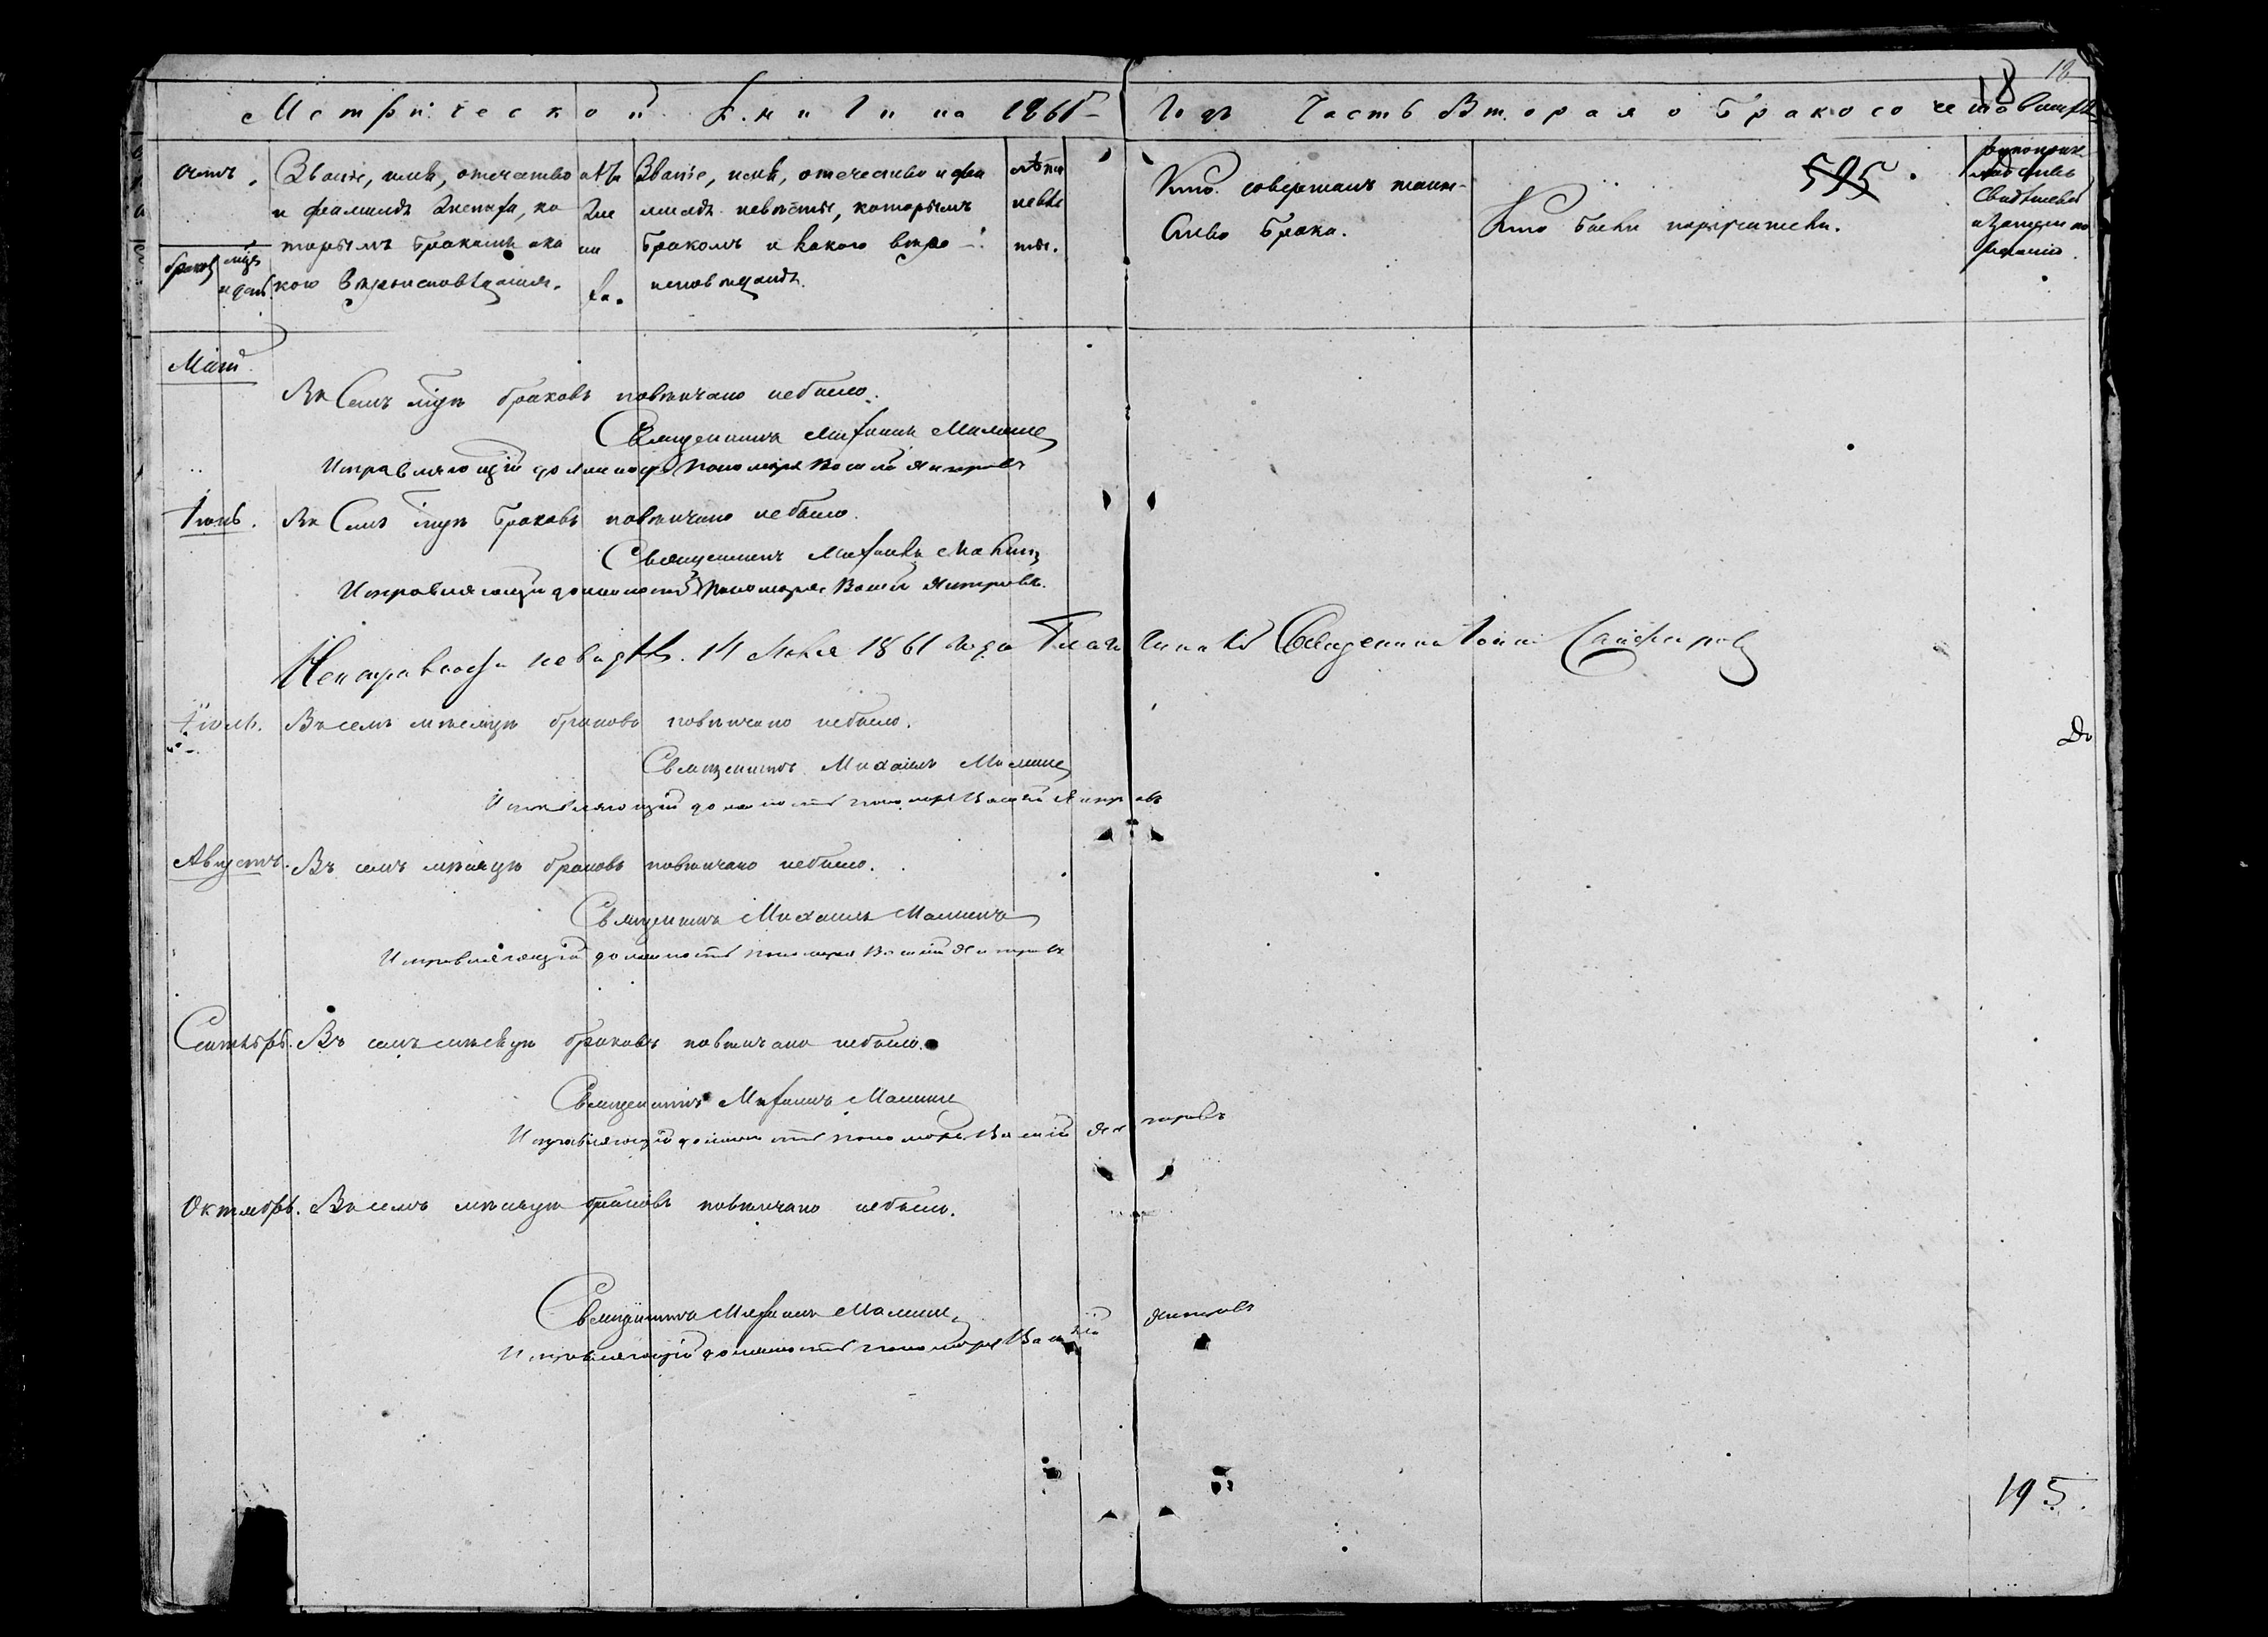 18
18
Метрической книги на 1861 – Годъ Часть Вторая о Бракосочетавших
595
счетъ.
браковъ
мцъ и день.
Званіе, имя, отечество
и фамилія жениха, ко
торымъ бракомъ и ка
кого вѣроисповѣданія.
лѣта
жени
ха.
Званіе, имя, отечество и фа
милія невѣсты, которымъ
бракомъ и какого вѣро–
исповѣданія.
лѣта
невѣс
ты.
Кто совершалъ таин-
ство брака.
Кто были поручители.
Май.
Въ Семъ мцѣ браковъ повѣнчано небыло.
Священникъ Михаилъ
Исправляющій должность Пономаря Василій
Іюнь.
Въ Семъ мцѣ браковъ повѣнчано небыло.
Священникъ Михаилъ
Исправляющій должность Пономаря Василій
14 1861 года Священникъ
Іюль. Въ семъ мѣсяцѣ браковъ повѣнчано небыло.
До
Священникъ Михаилъ
Исправляющій должность пономаря Василій
Августъ. Въ семъ мѣсяцѣ браковъ повѣнчано небыло.
Священникъ Михаилъ
Исправляющій должность пономаря Василій
Сентябрь. Въ семъ мѣсяцѣ браковъ повѣнчано небыло.
Священникъ Михаилъ
Исправляющій должность пономаря Василій
Октябрь. Въ семъ мѣсяцѣ браковъ повѣнчано небыло.
Священникъ Михаилъ
Исправляющій должность пономаря Василій
195.